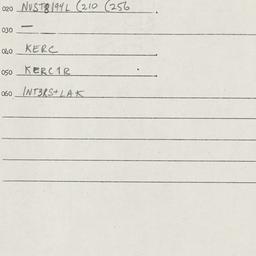 020 NUST8194L (210 (256
030 —
040 KERC
050 KERC1R
060 INT3RS+LAK